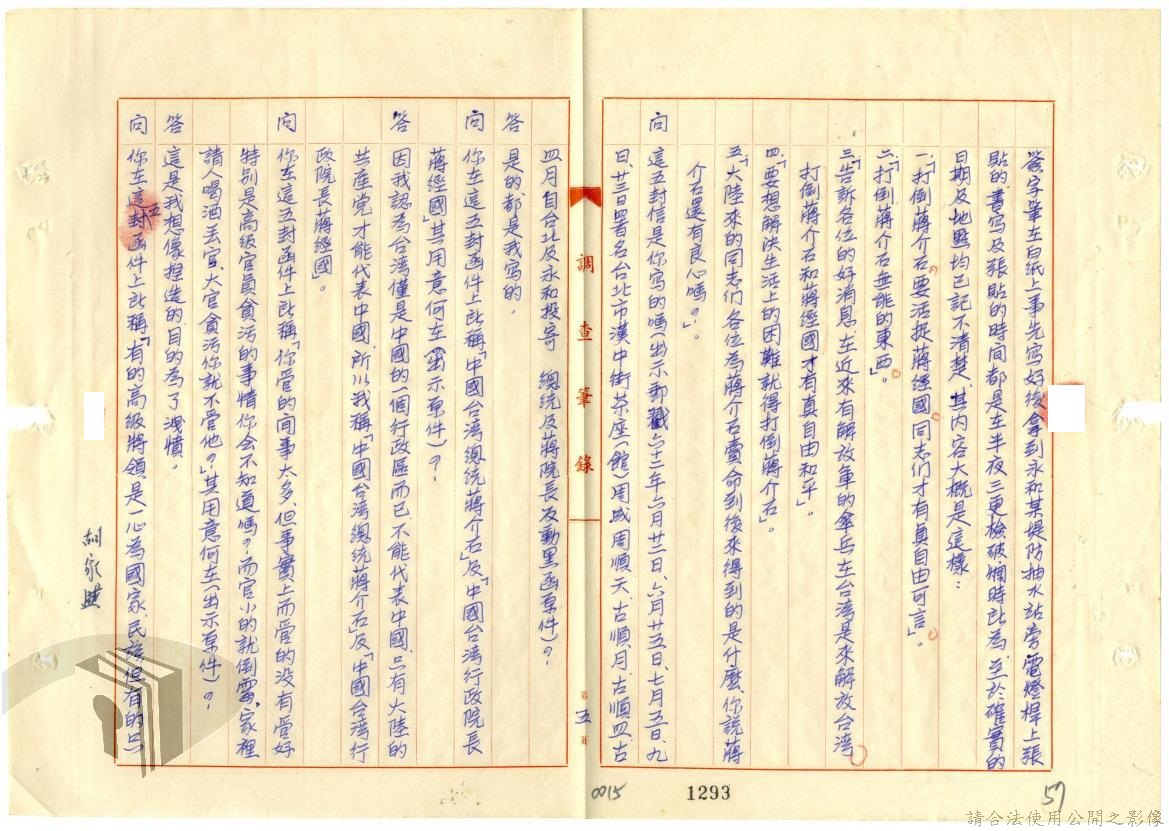 簽字筆在白紙上事先寫好後拿到永和某堤防抽水站旁電燈桿上張
貼的書寫及張貼的時间都是在半夜三更檢破爛時所為、至於確實的
日期及地點均已記不清楚、其内容大概是這樣：
一、「打倒蔣介石要活捉蔣經國同志们才有真自由可言」。
二、「打倒蔣介石無能的東西」。
三、「告訴各位的好消息、在近來有解放軍的傘兵在台湾是來解放台湾
打倒蔣介石和蔣經國才有真自由和平」。
四、「要想解決生活上的困難就得打倒蔣介石」。
五、「大陸來的同志们各位為蔣介石賣命到後來得到的是什麼、你說蔣
介石還有良心嗎？」。
问 這五封信是你寫的嗎（出示郵戳六十二年六月廿二日、六月廿五日、七月五日、九
日、廿三日署名台北市漢中街茶座（館）周成周順天、古順月、古順四、古
四月自台北及永和投寄 總統及蔣院長反動黑函原件）？
答 是的、都是我寫的。
问 你在這五封函件上所稱「中國台湾總統蔣介石」及「中國台湾行政院長
蔣經國」其用意何在（出示原件）？
答 因我認為台湾僅是中國的一個行政區而已不能代表中國、只有大陸的
共產党才能代表中國、所以我稱「中國台湾總統蔣介石」及「中國台湾行
政院長蔣經國」。
问 你在這五封函件上所稱「你管的间事太多、但事實上而管的没有管好
特別是高級官員貪污的事情你会不知道嗎？而官小的就倒霉、家裡
請人喝酒丟官、大官貪污你就不管他？」其用意何在（出示原件）？
答 這是我想像捏造的目的為了洩憤。
问 你在這五封函件上所稱「有的高級將領是一心為國家、民族但有的只
胡家
調查筆錄
第五頁
0015
1293
57
請合法使用公開之影像